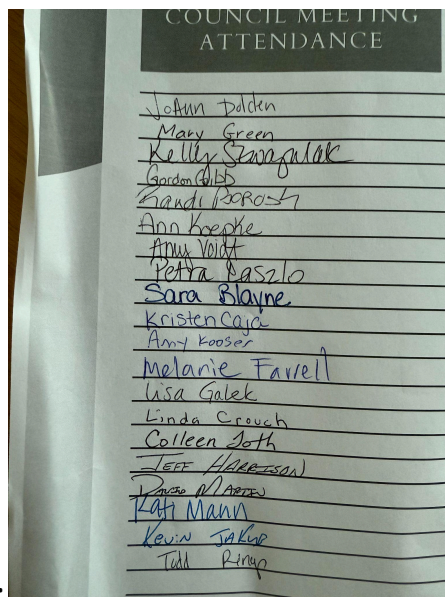 COUNCIL MEETING
ATTENDANCE
JoAnn Dolden
Mary Green
Kelly
Gordon Gibb
Randi BOROSH
Ann Koepke
Amy Voidt
Petra Laszlo
Sara Blayne
Kristen Caja
Amy Kooser
Melanie Farrell
Lisa Galek
Linda Crouch
Colleen Toth
JEFF HARRISON
DAVID MARTIN
Kati Mann
Kevin JAKUB
Todd Ringo